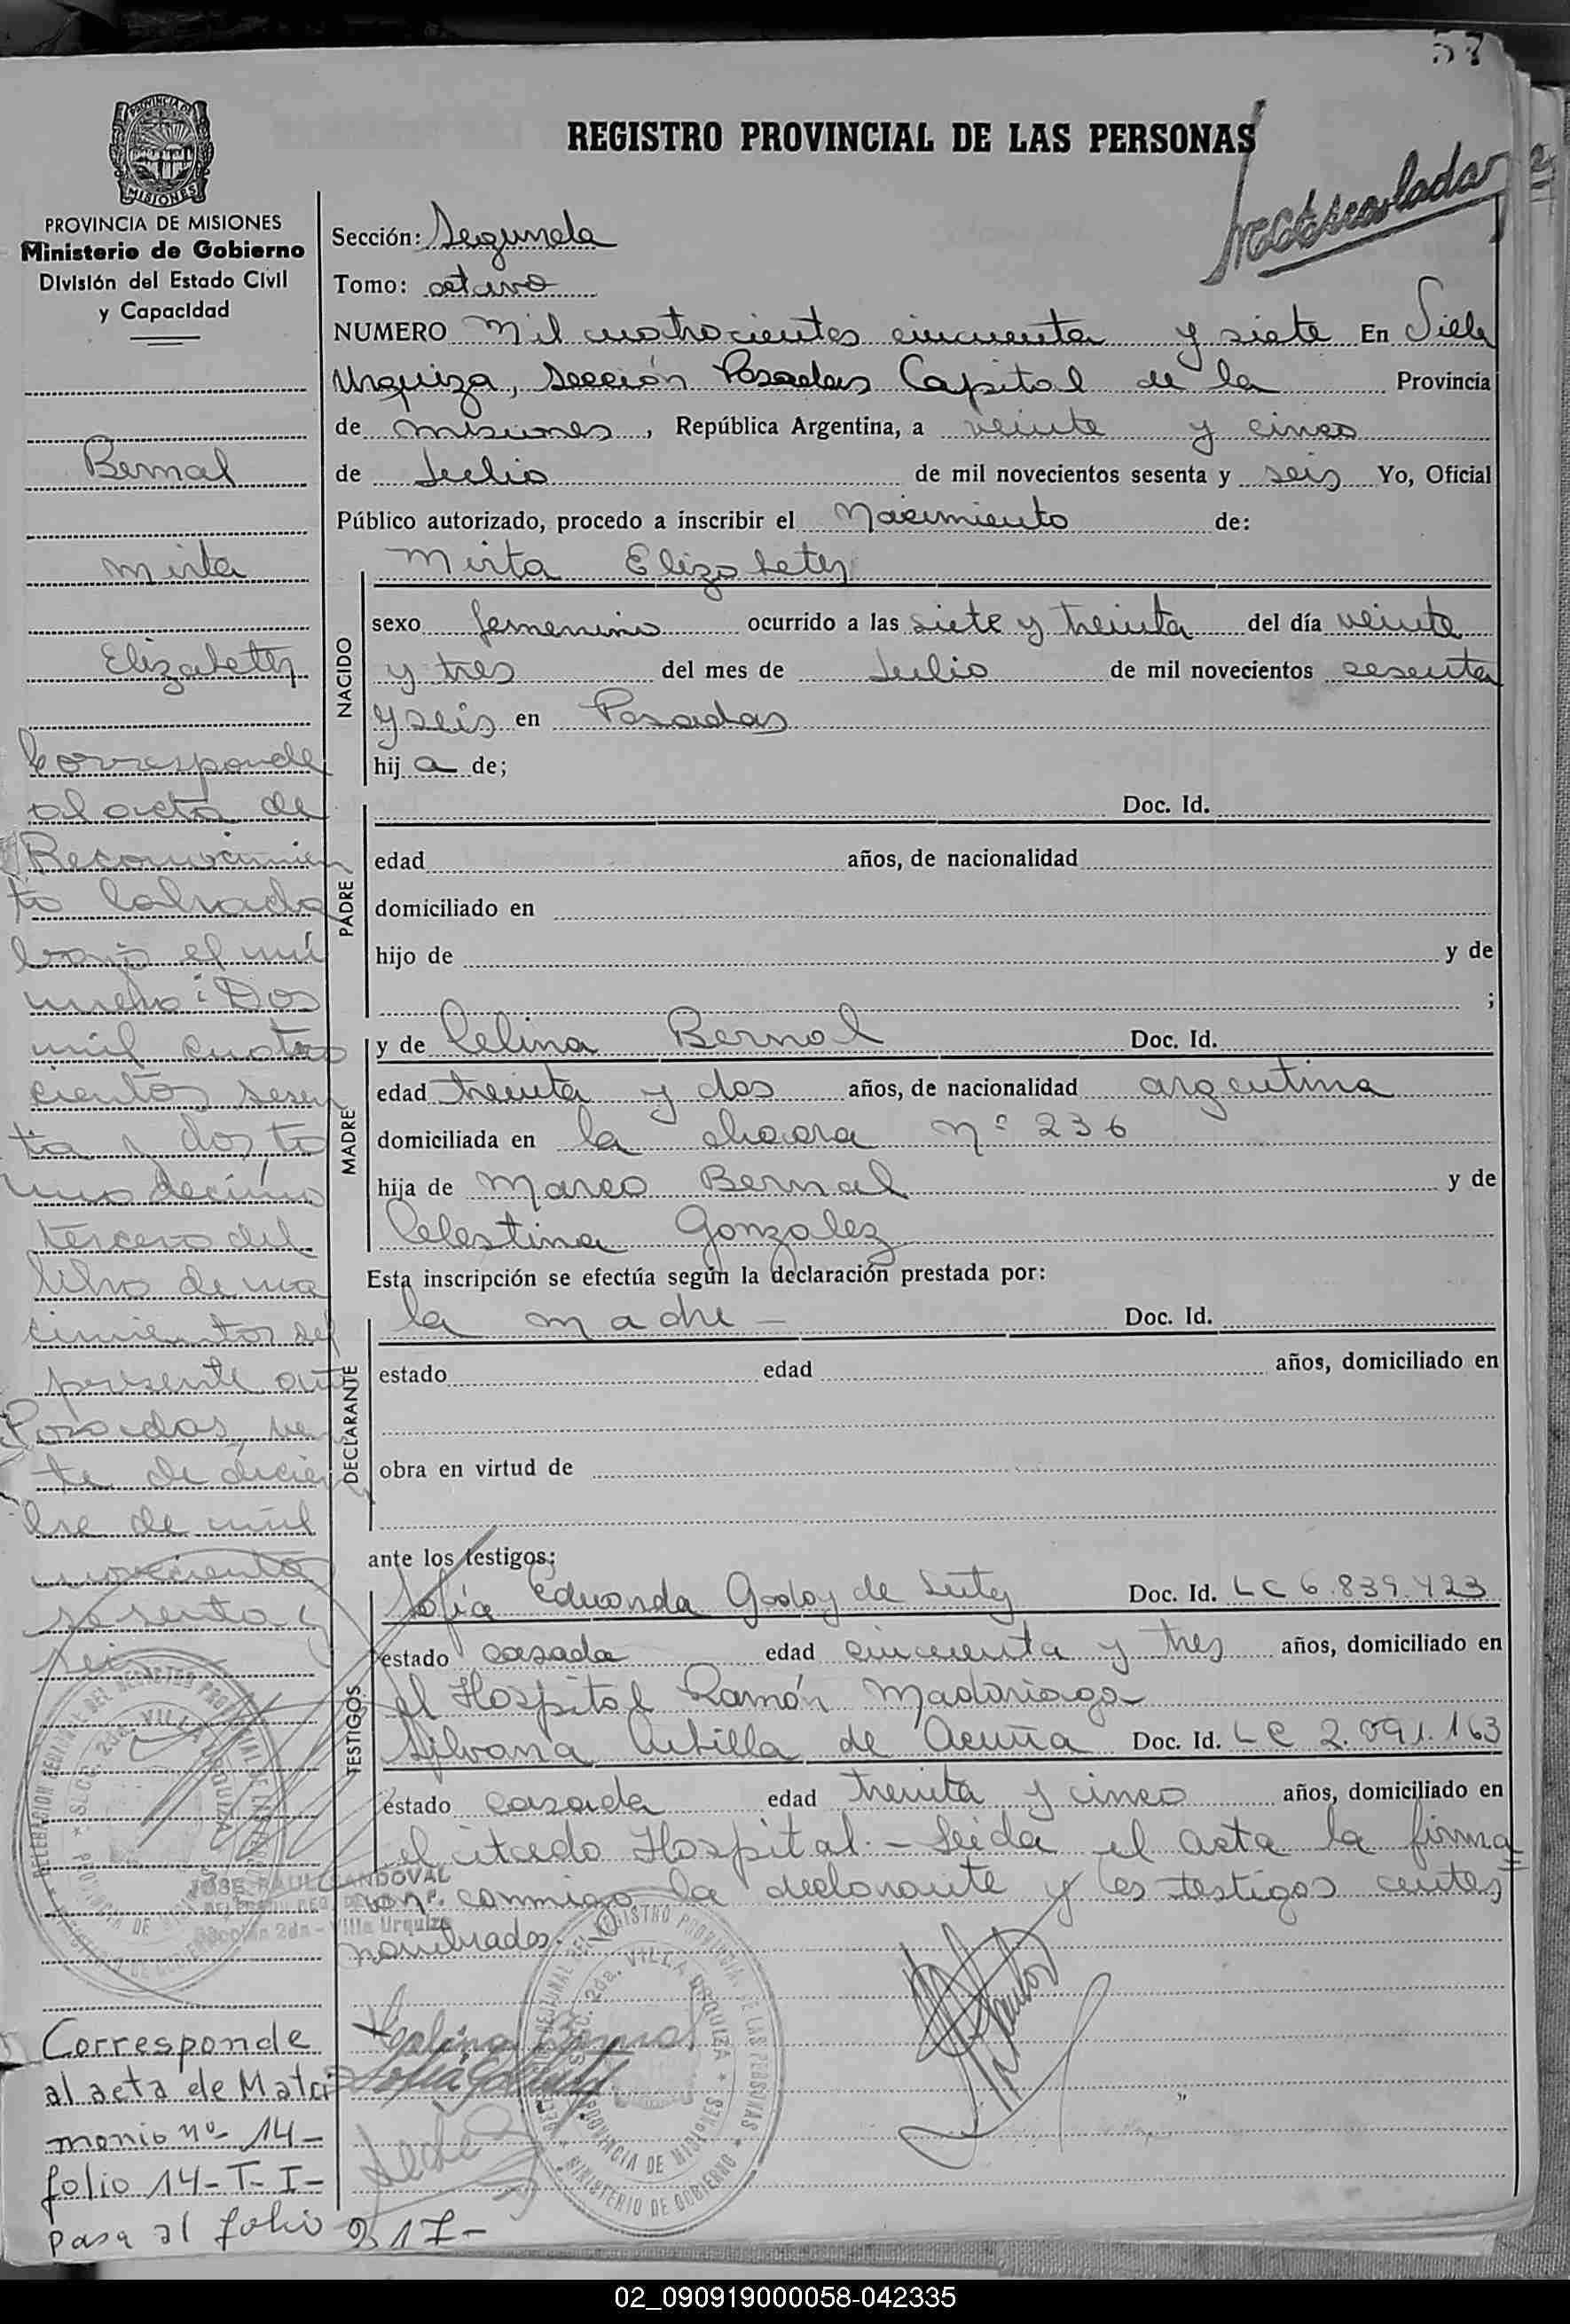 57
REGISTRO PROVINCIAL DE LAS PERSONAS
PROVINCIA DE MISIONES
Ministerio de Gobierno
División del Estado Civil
y Capacidad
Sección: Segunda
Tomo: octavo
NUMERO Mil cuatrocientos cincuenta y siete En Villa
Urquiza, Sección Posadas Capital de la Provincia
de misiones, República Argentina, a veinte y cinco
de Julio de mil novecientos sesenta y seis Yo, Oficial
Público autorizado, procedo a inscribir el Nacimiento de:
Mirta Elizabeth
NACIDO
sexo femenino ocurrido a las siete y treinta del día veinte
y tres del mes de Julio de mil novecientos sesenta
y seis en Posadas
hij a de;
PADRE
Doc. Id.
edad años, de nacionalidad
domiciliado en
hijo de y de
;
MADRE
y de Celina Bernal Doc. Id.
edad treinta y dos años, de nacionalidad argentina
domiciliada en la chacra Nº 236
hija de Marco Bernal y de
Celestina Gonzalez
Esta inscripción se efectúa según la declaración prestada por:
DECLARANTE
la madre - Doc. Id.
estado edad años, domiciliado en
obra en virtud de
ante los testigos:
TESTIGOS
Sofía Eduarda Godoy de Doc. Id. LC 6.839.423
estado casada edad cincuenta y tres años, domiciliado en
el Hospital Ramón Madariaga
Silvana de Acuña Doc. Id. LC 2.091.163
estado casada edad treinta y cinco años, domiciliado en
el citado Hospital.- Leida el acta la firma
con conmigo la declarante y los testigos antes
nombrados.
Bernal
Mirta
Elizabeth
Corresponde
al acta de
Reconocimien
to labrada
bajo el nú
mero: Dos
mil cuatro
cientos sesen
ta y dos, to
mo decimo
tercero del
libro de na
cimientos del
presente año
Posadas, vein
te de diciem
bre de mil
novecientos
sesenta y
seis
JOSE RAUL SANDOVAL
Sección 2da - Villa Urquiza
DELEGACION REGIONAL DEL REGISTRO PROVINCIAL DE LAS PERSONAS
SECC. 2da. VILLA URQUIZA
PROVINCIA DE MISIONES
MINISTERIO DE GOBIERNO
Corresponde
al acta de Matri
monio nº 14-
folio 14-T-I-
pasa al folio 217-
02_090919000058-042335